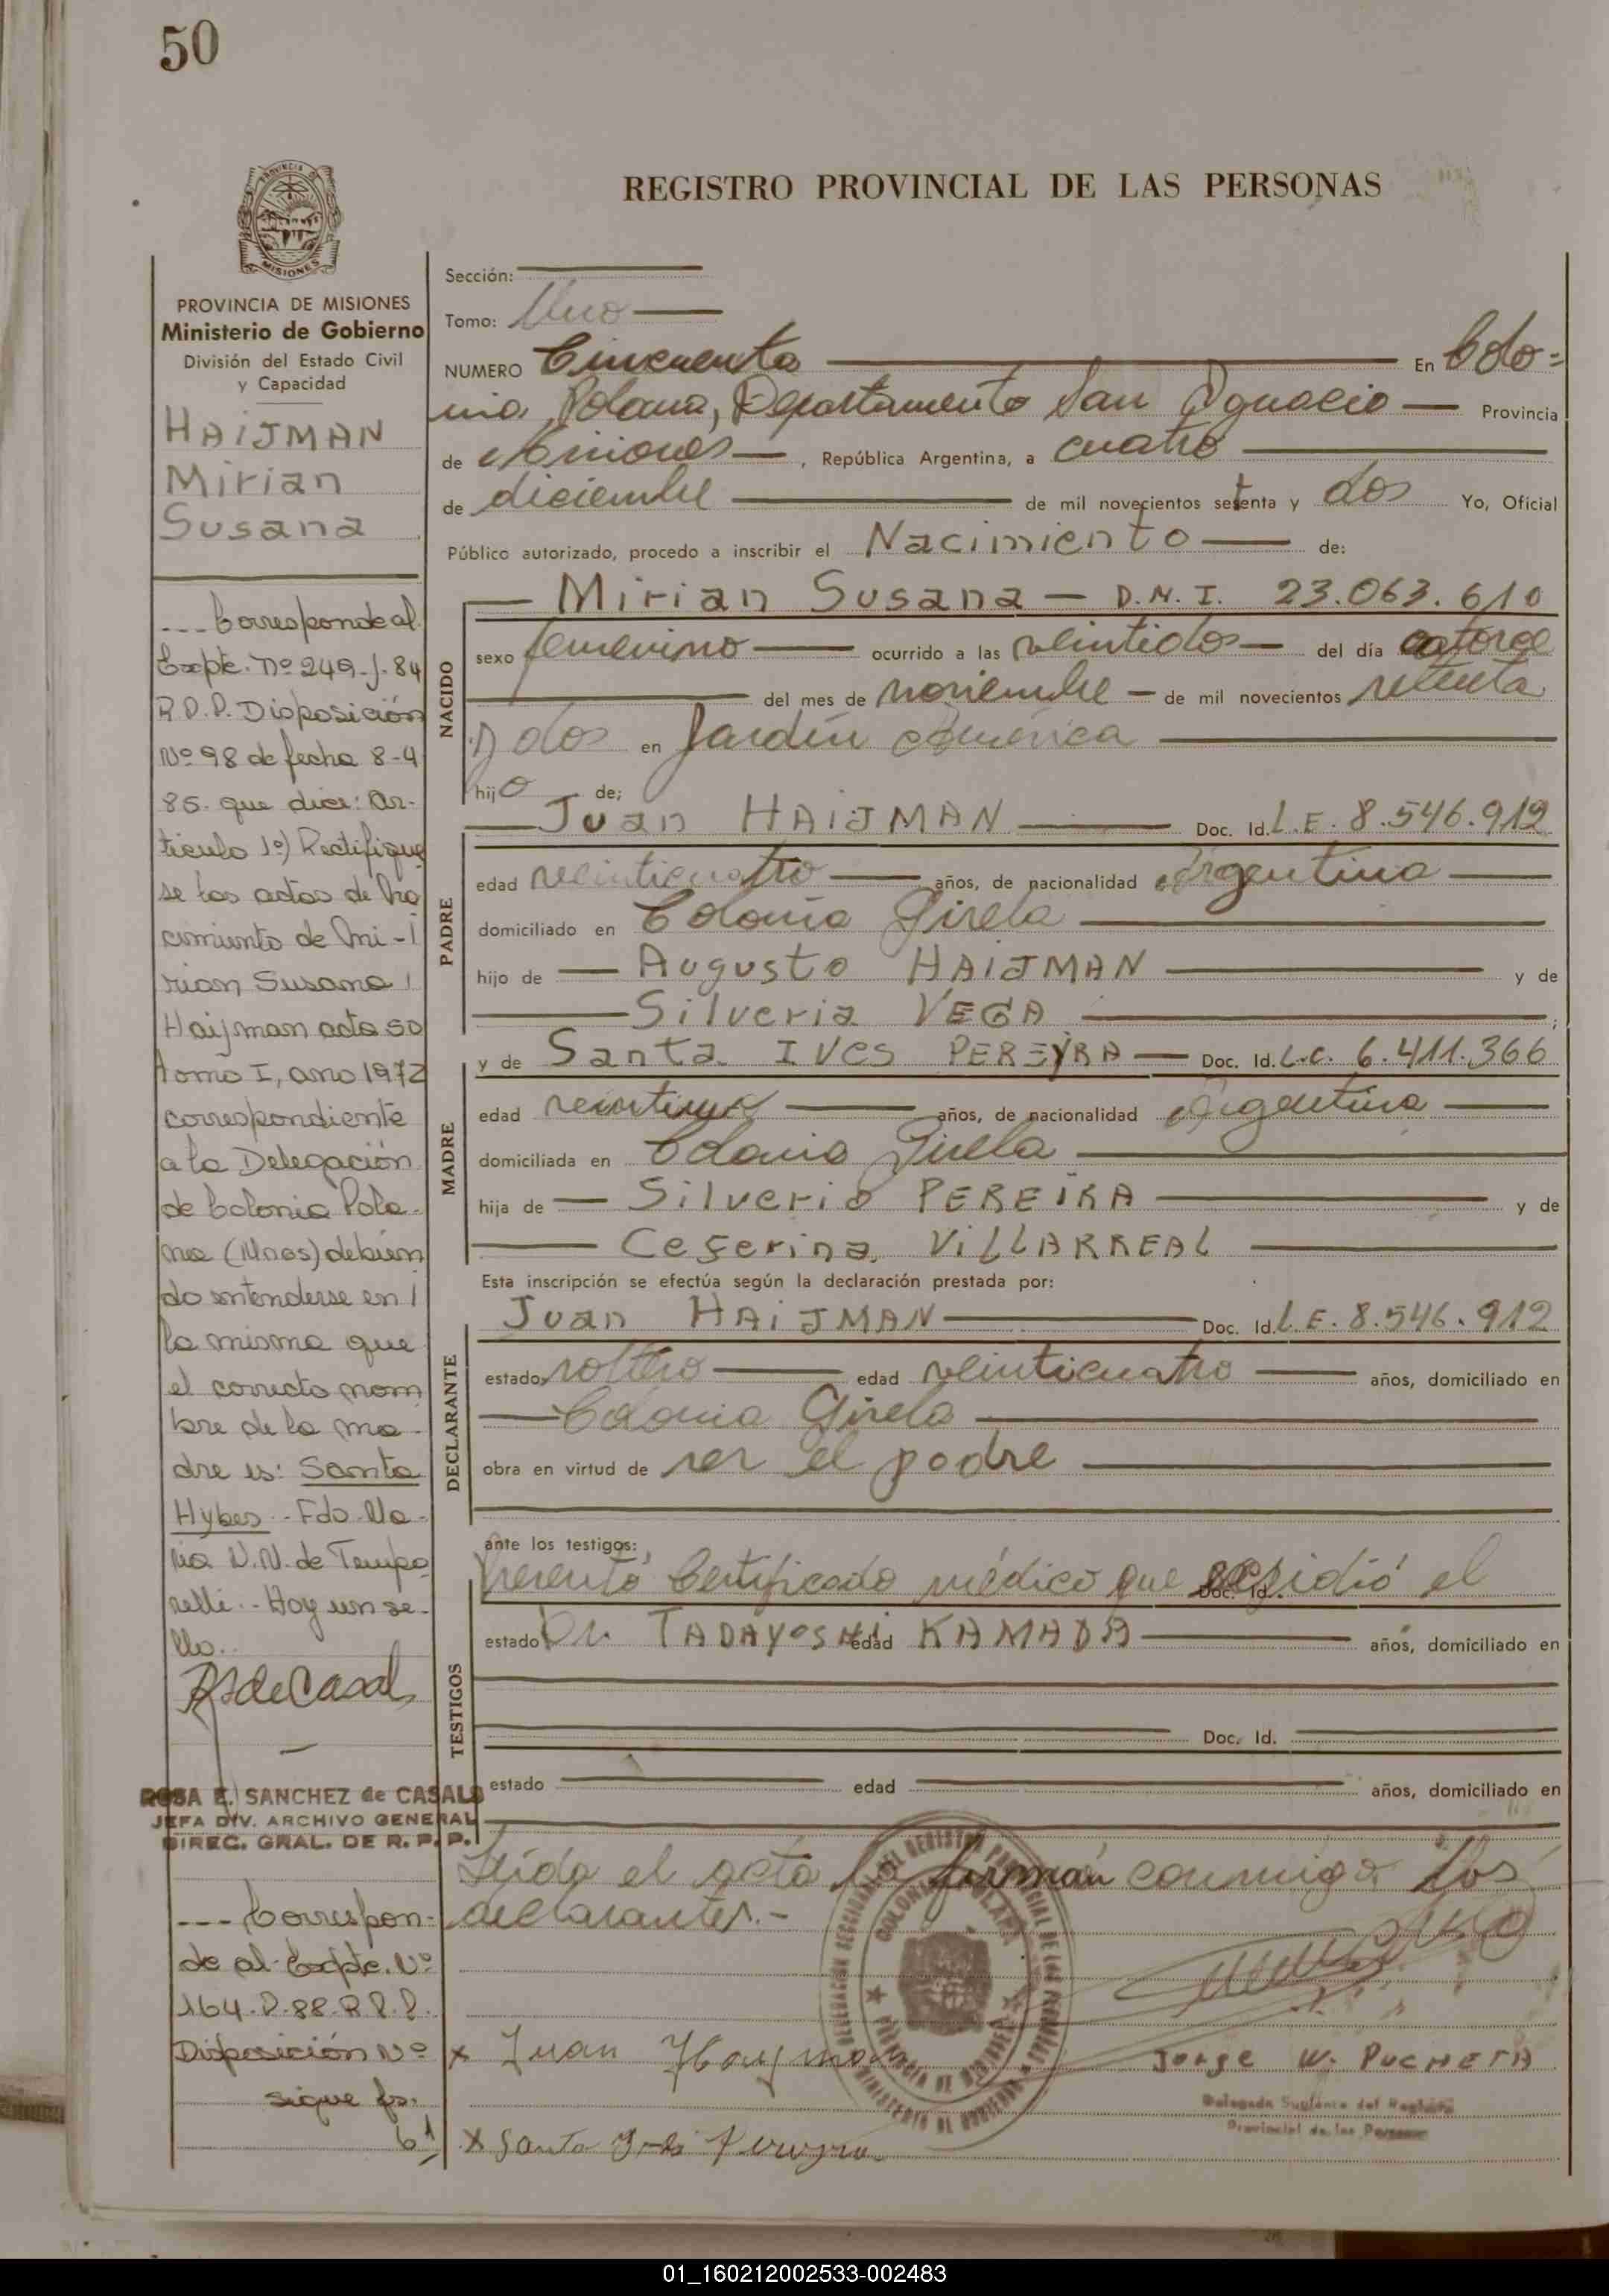 50
PROVINCIA DE
MISIONES
REGISTRO PROVINCIAL DE LAS PERSONAS
PROVINCIA DE MISIONES
Ministerio de Gobierno
División del Estado Civil
y Capacidad
HAIJMAN
Mirian
Susana
--- Corresponde al
Expte. Nº 249-J-84
R.P.P. Disposición
Nº 98 de fecha 8-4
85. que dice: Ar-
tículo 1º) Rectifíque
se las actas de Na
cimiento de Mi-
rian Susana
Haijman acta 50
tomo I, año 1972
correspondiente
a la Delegación
de Colonia Pola-
na (Mnes) debien
do entenderse en
la misma que
el correcto nom
bre de la ma-
dre es: Santa
Hybes.- Fdo. Ma-
ria N.N. de Tempo
relli.- Hay un se-
llo.
RSdeCasals
ROSA E. SANCHEZ de CASALS
JEFA DIV. ARCHIVO GENERAL
DIREC. GRAL. DE R. P. P.
--- Correspon-
de al Expte. Nº
164-P-88-R.P.P.
Disposición Nº
sigue fs.
61
Sección:
Tomo: Uno
NUMERO Cincuenta En Colo=
nia Polana, Departamento San Ignacio Provincia
de Misiones , República Argentina, a cuatro
de diciembre de mil novecientos setenta y dos Yo, Oficial
Público autorizado, procedo a inscribir el Nacimiento de:
NACIDO
Mirian Susana — D.N.I. 23.063.610
sexo femenino ocurrido a las veintidos del día catorce
del mes de noviembre de mil novecientos setenta
y dos en Jardín América
hijo de;
PADRE
Juan HAIJMAN Doc. Id. L.E. 8.546.912
edad veinticuatro años, de nacionalidad Argentina
domiciliado en Colonia Gisela
hijo de Augusto HAIJMAN y de
Silveria VEGA ;
MADRE
y de Santa IVes PEREYRA Doc. Id. L.C. 6.411.366
edad años, de nacionalidad Argentina
domiciliada en Colonia Gisela
hija de Silverio PEREIRA y de
Ceferina VILLARREAL
Esta inscripción se efectúa según la declaración prestada por:
DECLARANTE
Juan HAIJMAN Doc. Id. L.E. 8.546.912
estado soltero edad veinticuatro años, domiciliado en
Colonia Gisela
obra en virtud de ser el padre
ante los testigos:
TESTIGOS
Presentó Certificado médico que expidió el Doc. Id.
estado Dr. TADAYOSHI edad KAMADA años, domiciliado en
Doc. Id.
estado edad años, domiciliado en
Leída el acta la firman conmigo los
declarantes.-
x Juan Hayman
Jorge W. PUCHETA
Delegado Suplente del Registro
Provincial de las Personas
x Santa
01_160212002533-002483